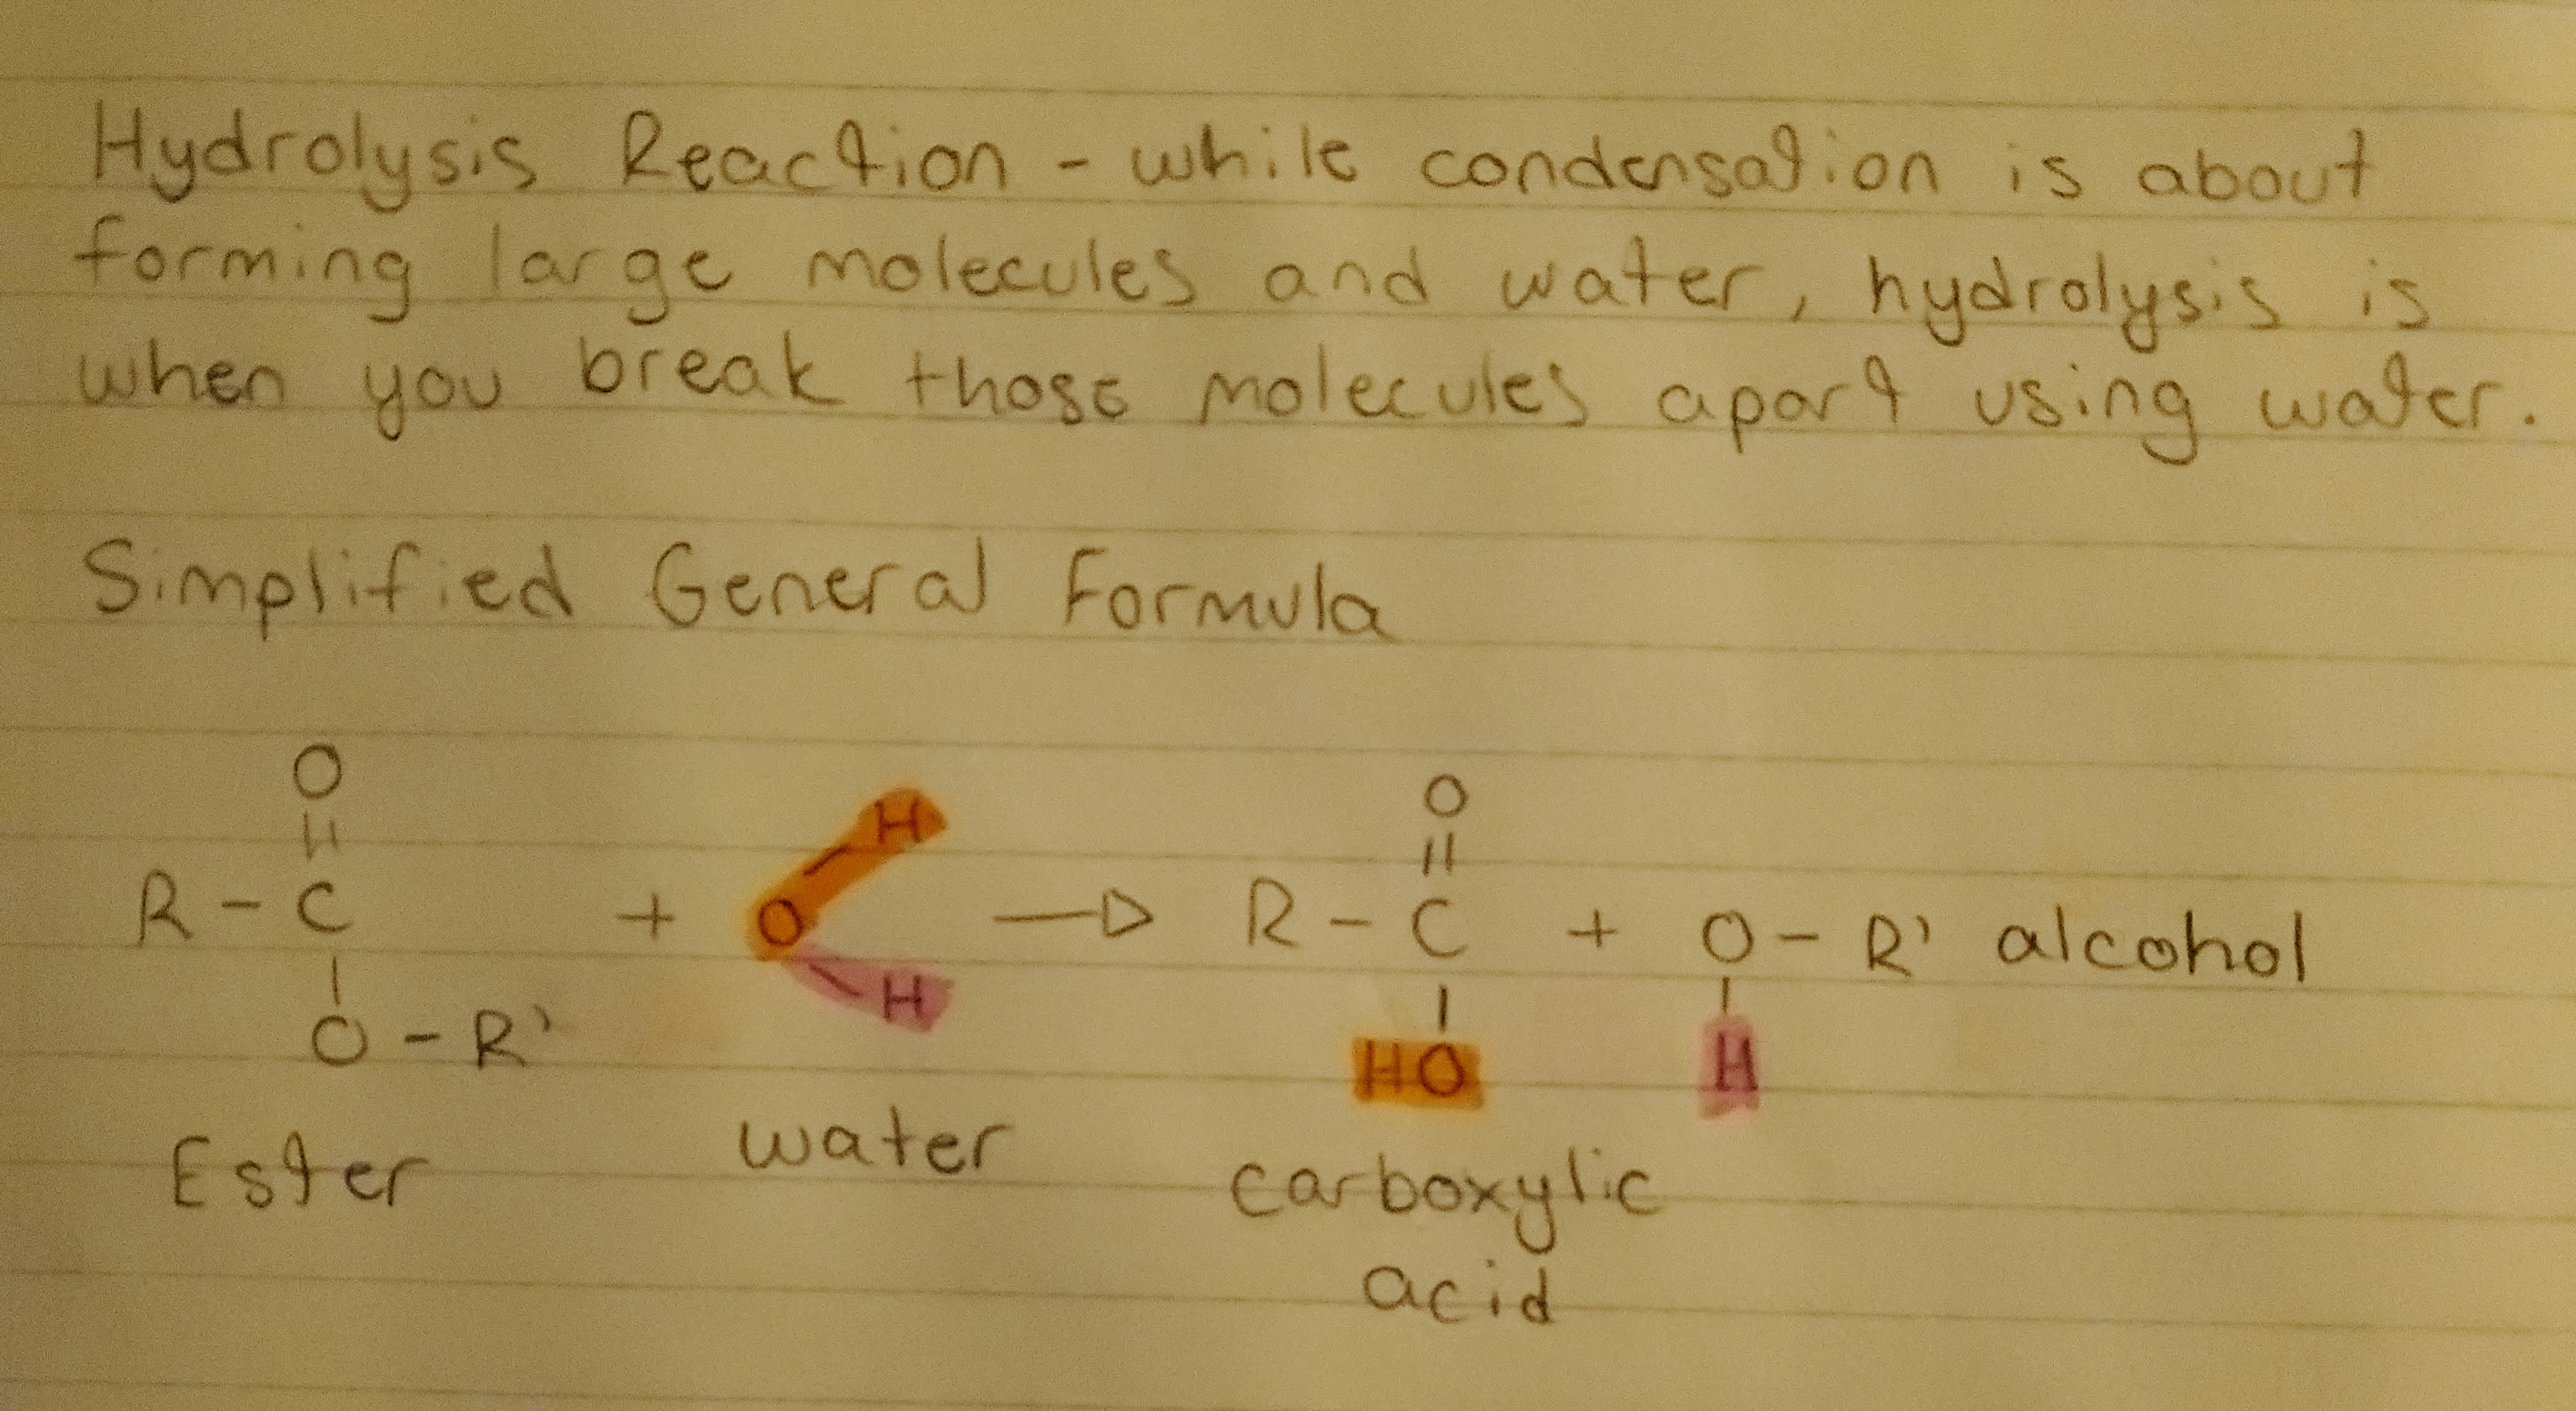 Hydrolysis Reaction - while condensation is about
forming large molecules and water, hydrolysis is
when you break those molecules apart using water.
Simplified General Formula
O
||
R - C
|
O - R'
Ester
+
H
O
H
water
→
O
||
R - C
|
HO
carboxylic
acid
+
O - R' alcohol
|
H